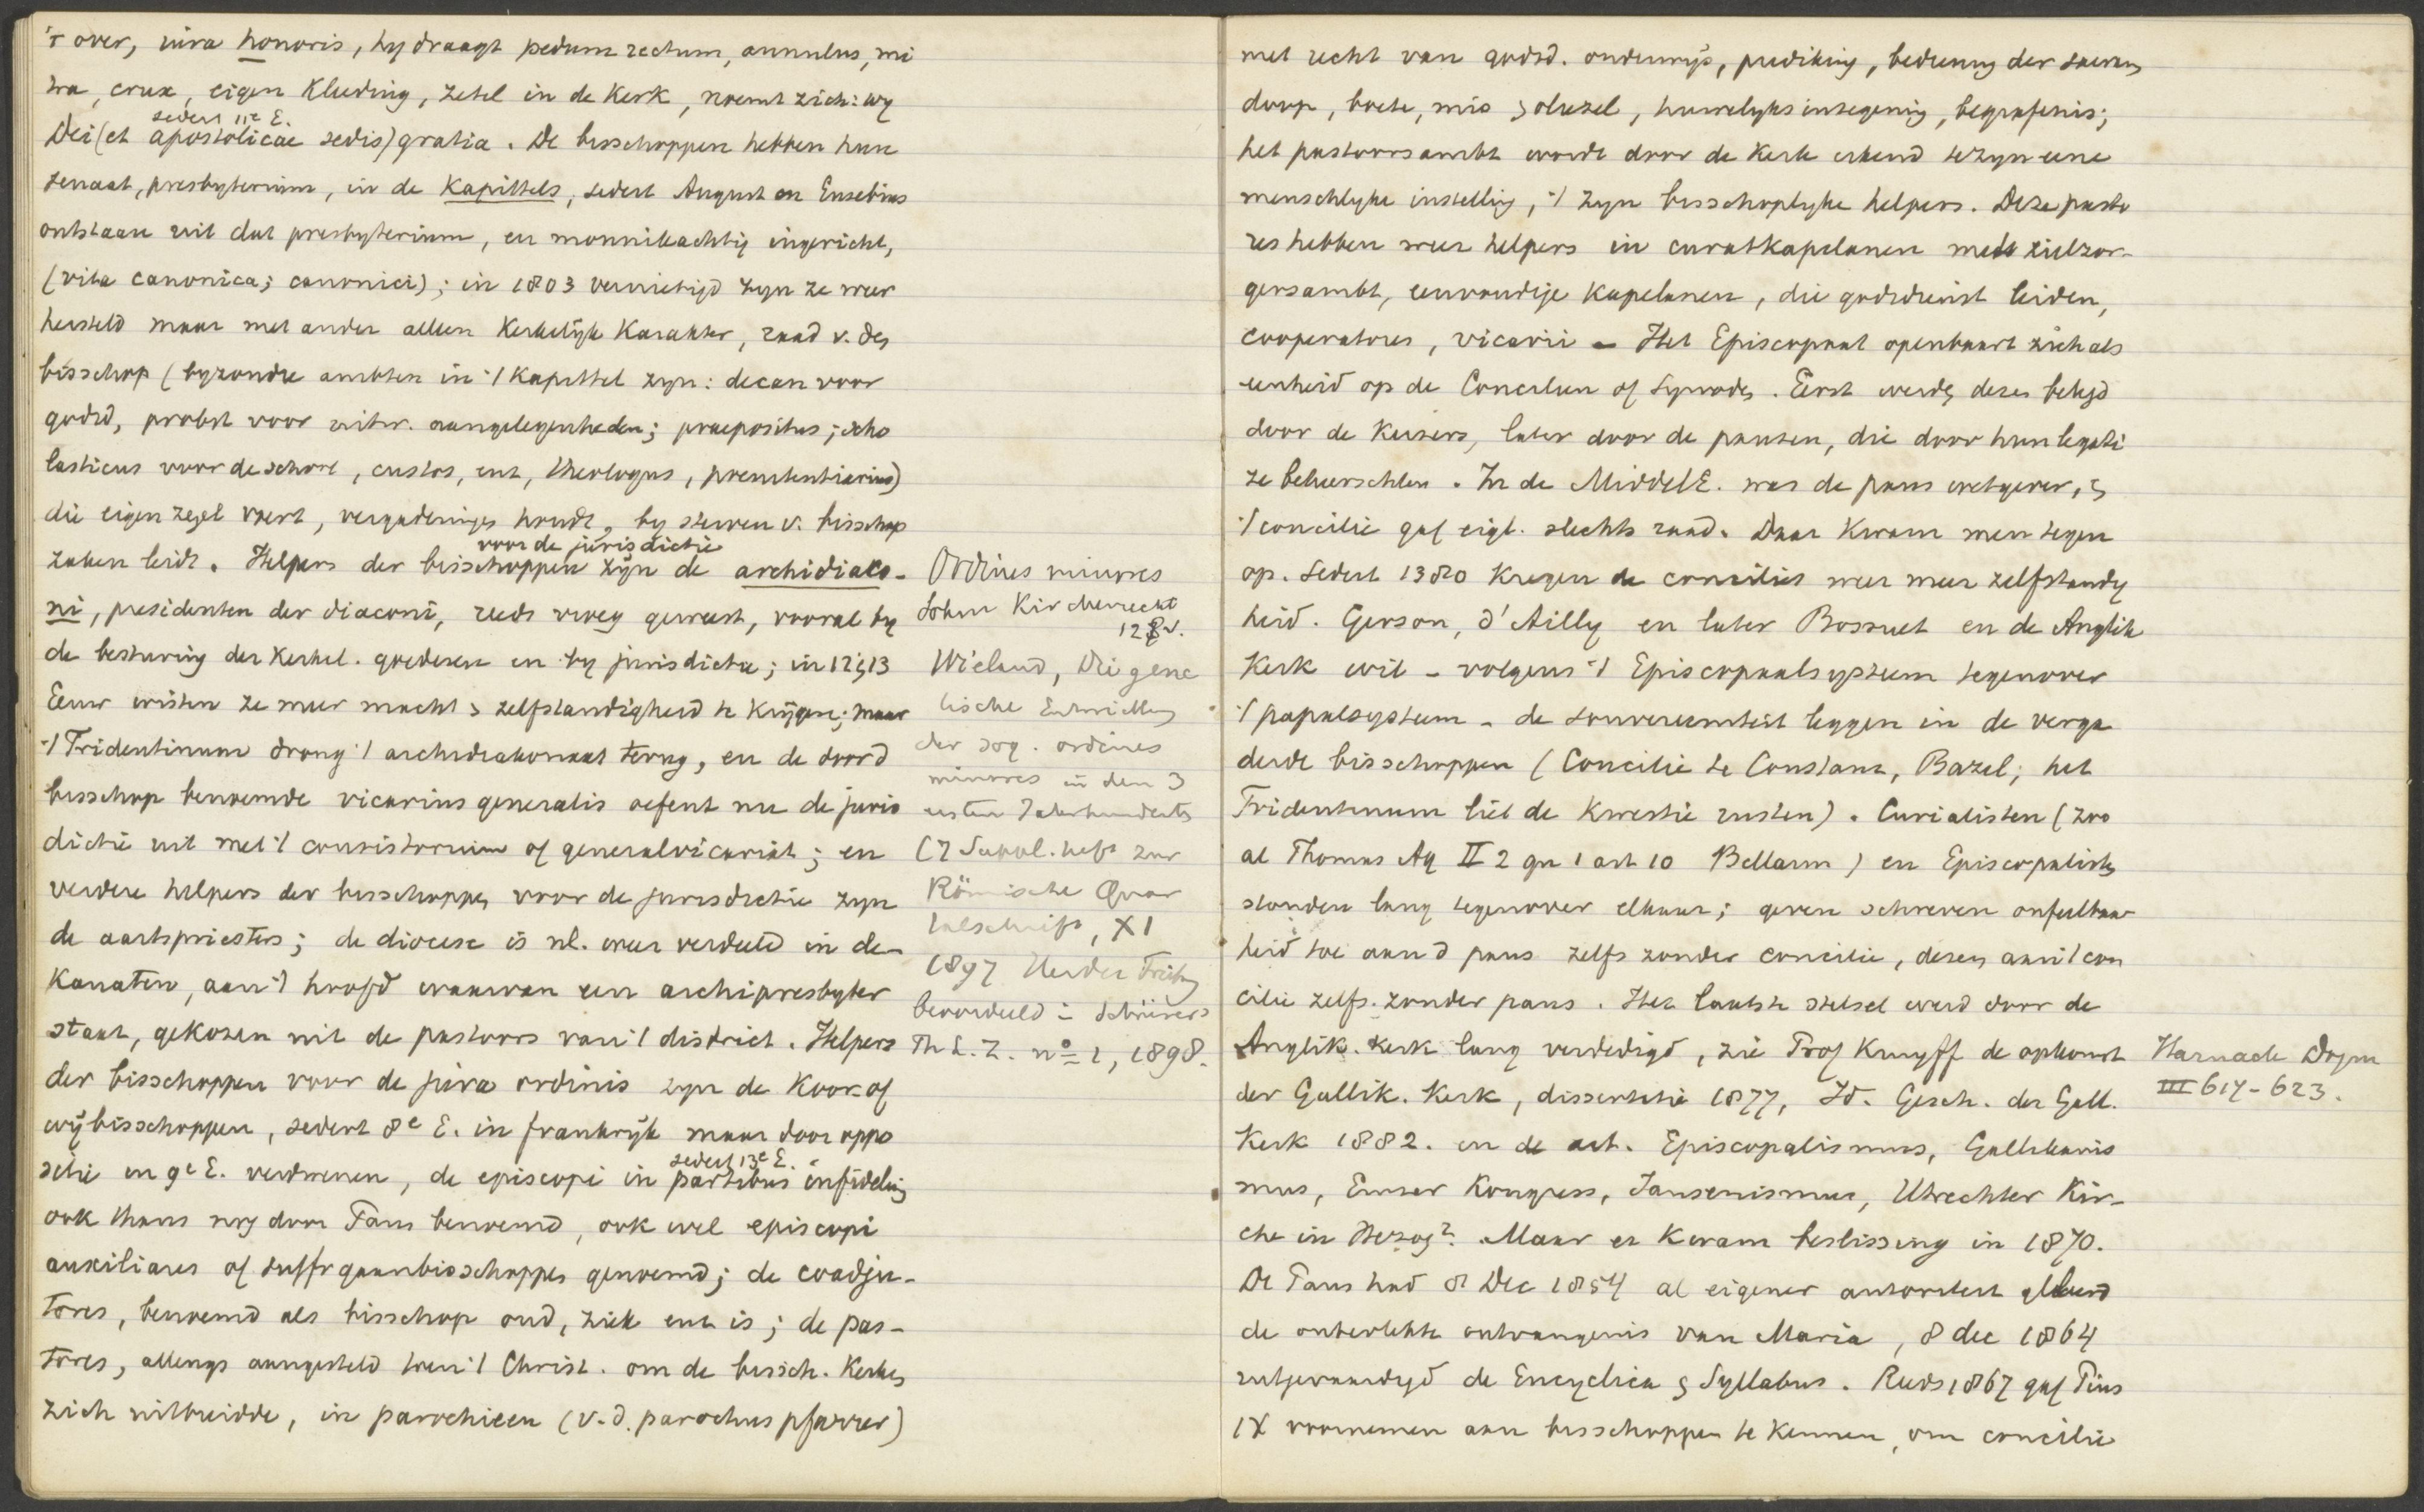 't over, iura honoris, hy draagt pedum rectum, annulus, mi
tra, crux, eigen kleeding, zetel in de kerk, noemt zich: wy
sedert 11e E.
Dei (et apostolicae sedis) gratia. De bisschoppen hebben hun
senaat, presbyterium, in de kapittels, sedert August en Eusebius
ontstaan uit dat presbyterium, en monnikachtig ingericht,
(vita canonica; canonici); in 1803 vernietigd zyn ze weer
hersteld maar met ander alleen kerkelijk karakter, raad v. den
bisschop (byzondre ambten in 't kapittel zyn: decan voor
godsd, probst voor uitw. aangelegenheden; praepositus; scho
lasticus voor de school, custos, ent, theologus, poenitentiarius)
die eigen zegel voert, vergaderinges houdt, by sterven v. bisschop
voor de jurisdictie
zaken leidt. Helpers der bisschoppen zyn de archidiaco-
ni, presidenten der diaconi, reeds vroeg geweest, vooral by
de besturing der kerkel. goederen en by jurisdictie; in 12 en 13
Eeuw wisten ze meer macht en zelfstandigheid te krijgen; maar
't Tridentinum drong 't archidiakonaat terug, en de door d
bisschop benoemde vicarius generalis oefent nu de juris
dictie uit met 't consistorium of generalvicariat; en
verdere helpers der bisschoppen voor de jurisdictie zyn
de aartspriesters; de diocese is nl. weer verdeeld in de-
kanaten, aan 't hoofd waarvan een archipresbyter
staat, gekozen uit de pastoors van 't district. Helpers
der bisschoppen voor de jura ordinis zyn de koor- of
wijbisschoppen, sedert 8e E. in frankrijk maar door oppo
sedert 13e E.
sitie in 9e E. verdwenen, de episcopi in partibus infidelium
ook thans nog door Paus benoemd, ook wel episcopi
auxiliares of suffragaanbisschoppen genoemd; de coadju-
tores, benoemd als bisschop oud, ziek enz is; de pas-
tores, allengs aangesteld toen 't Christ. om de bissch. kerken
zich uitbreidde, in parochieen (v. d. parochus pfarrer)
Ordines minores
Sohm Kirchenrecht
128 v.
Wieland, Die gene
tische Entwicklung
der sog. ordines
minores in den 3
ersten Jahrhunderts
(7 Suppl. heft zur
Römische Quar
talschrift, XI
1897 Herder Freiburg
beoordeeld in Schürers
Th L. Z. no 1, 1898.
met recht van godsd. onderwijs, prediking, bediening der sacram
doop, boete, mis en oliesel, huwelyksinzegening, begrafenis;
het pastoorsambt wordt door de kerk erkend te zyn eene
menschlyke instelling, 't zyn bisschoplyke helpers. Deze pasto
res hebben weer helpers in curatkapelanen met zielzor-
gersambt, eenvoudige kapelanen, die godsdienst leiden,
cooperatores, vicarii - Het Episcopaat openbaart zich als
eenheid op de Concilien of Synoden. Eerst werden dezen belegd
door de keizers, later door de pausen, die door hun legati
ze beheerschten. In de MiddelE. was de paus wetgever, en
't concilie gaf eigl. slechts raad. Daar kwam men tegen
op. Sedert 1380 kregen de concilies weer meer zelfstandig
heid. Gerson, d'Ailly en later Bossuet en de Anglik
kerk wil - volgens 't Episcopaalsysteem tegenover
't papaalsysteem - de souvereiniteit leggen in de verga
derde bisschoppen (Concilie te Constanz, Bazel; het
Tridentinum liet de kwestie rusten). Curialisten (zoo
al Thomas Aq II 2 qu 1 art 10 Bellarm) en Episcopalisten
stonden lang tegenover elkaar; genen schreven onfeilbaar
heid toe aan d paus zelfs zonder concilie, dezen aan 't con
cilie zelfs zonder paus. Het laatste stelsel werd door de
Anglik. kerk lang verdedigd, zie Prof Kruyff de opkomst
der Gallik. kerk, dissertatie 1877, Id. Gesch. der Gall.
Kerk 1882. en de art. Episcopalismus, Gallikanis
mus, Emser Kongress, Jansenismus, Utrechter Kir-
che in Herzog2. Maar er kwam beslissing in 1870.
De Paus had 8 Dec 1854 al eigener autoriteit
de onbevlekte ontvangenis van Maria, 8 dec 1864
uitgevaardigd de Encyclica en Syllabus. Reeds 1867 gaf Pius
IX voornemen aan bisschoppen te kennen, om concilie
Harnack Dogm
III 617-623.